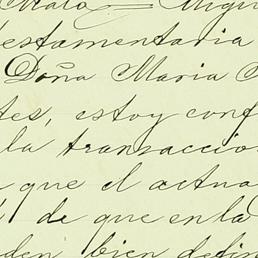 Mata — Migu
estamentaria
Doña Maria
tes, estoy conf
la transaccio
que el actua
de que en la
den bien defin